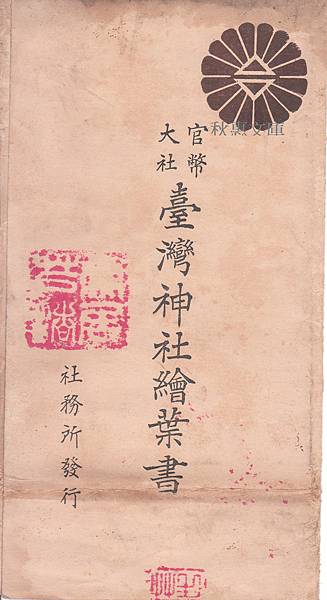 秋惠文庫
官幣
大社
臺灣神社繪葉書
社務所發行